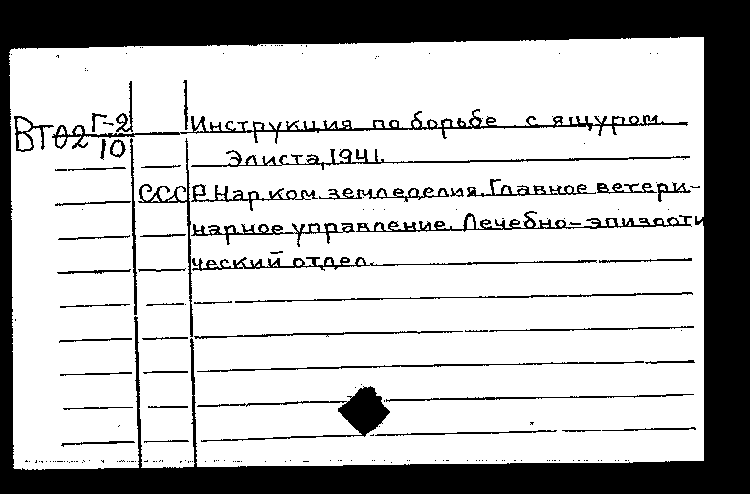 ВТ02 Г-2/10
Инструкция по борьбе с ящуром.
Элиста, 1941.
СССР. Нар. ком. земледелия. Главное ветери-
нарное управление. Лечебно-эпизооти
ческий отдел.